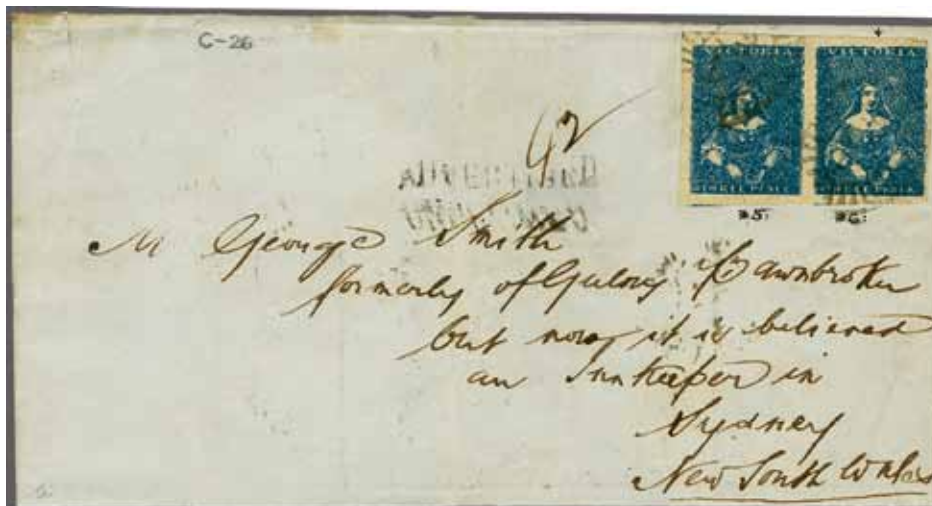 C-26
VICTORIA VICTORIA
THREE PENCE THREE PENCE
42
ADVERTISED
UNCLAIMED
Mr George Smith
formerly of Geelong Pawnbroker
but now it is believed
an Innkeeper in
Sydney
New South Wales